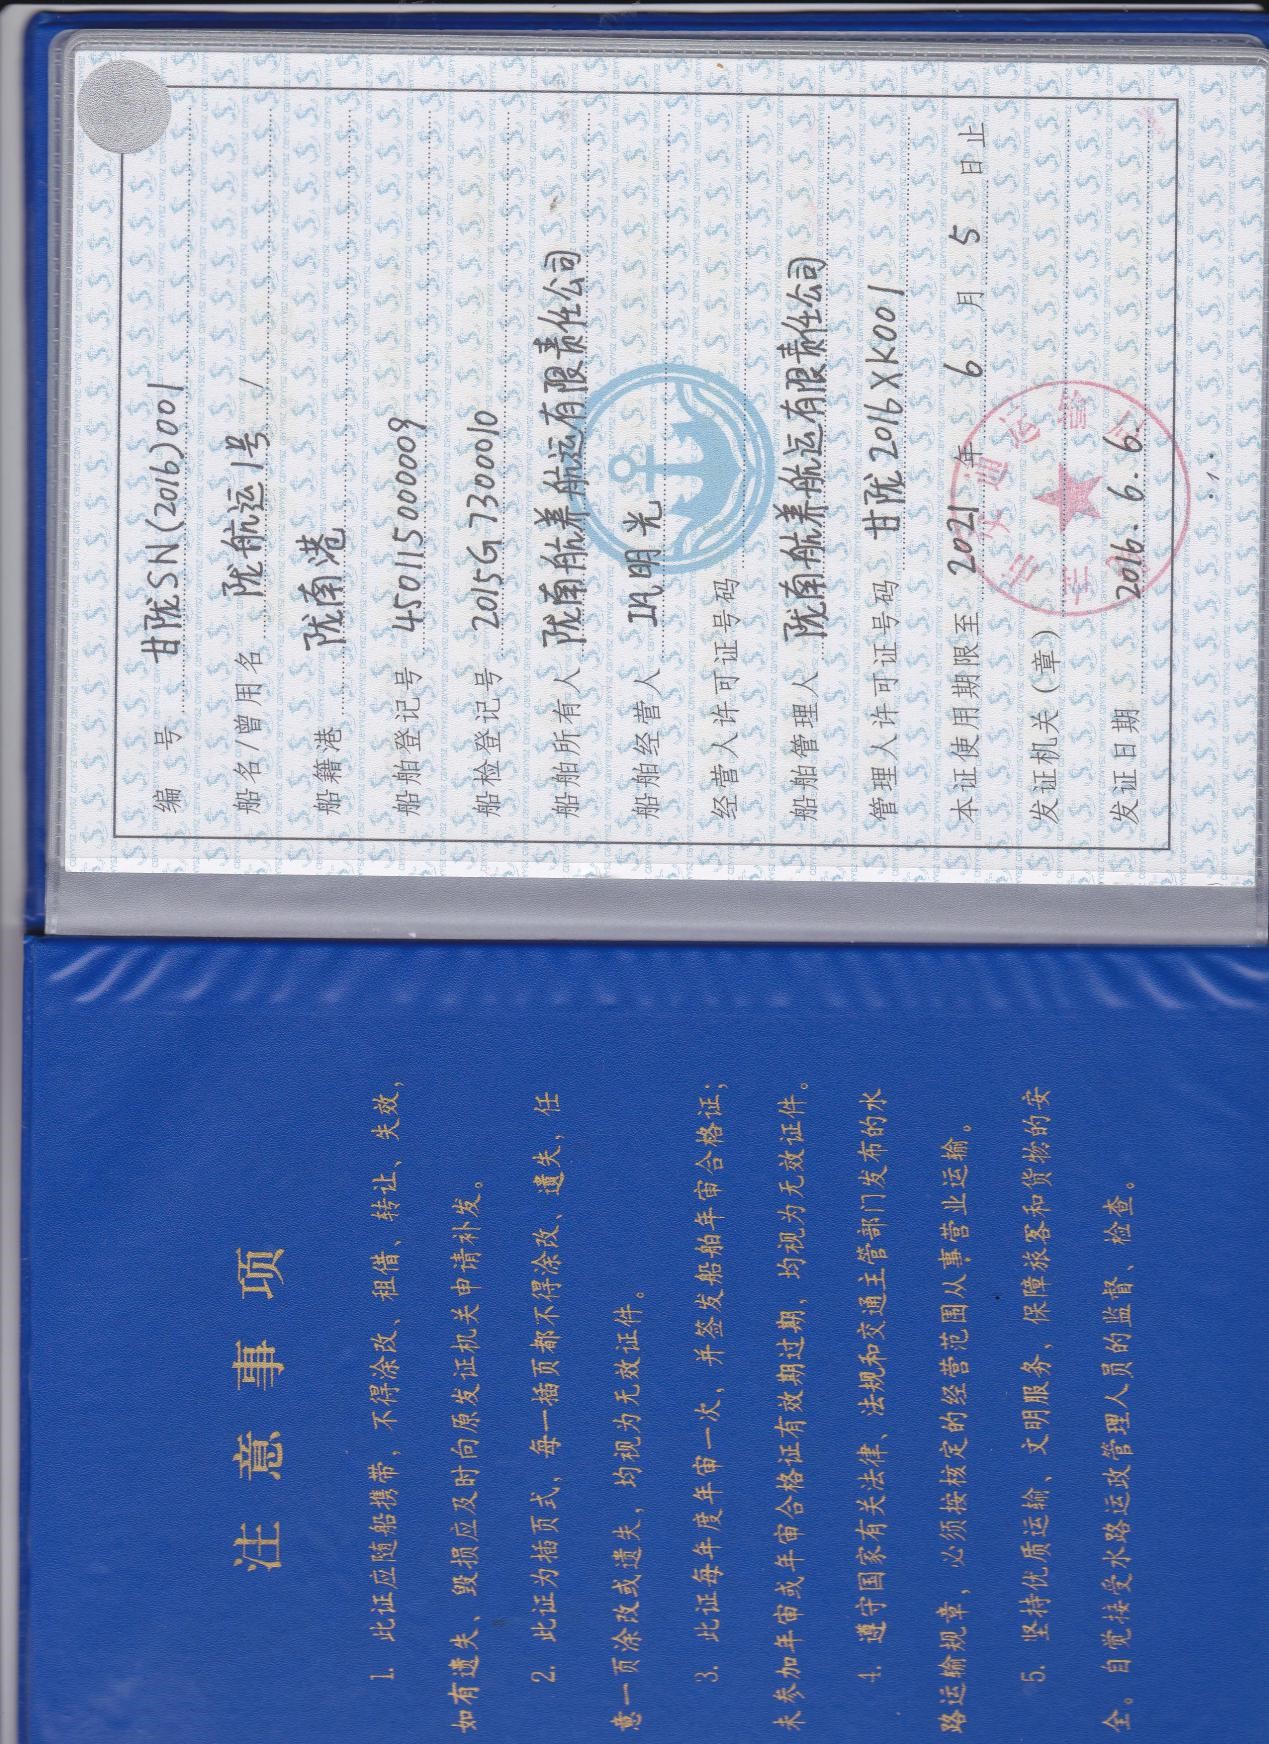 注意事项
1. 此证应随船携带，不得涂改、租借、转让、失效，
如有遗失、毁损应及时向原发证机关申请补发。
2. 此证为插页式，每一插页都不得涂改、遗失，任
意一页涂改或遗失，均视为无效证件。
3. 此证每年度年审一次，并签发船舶年审合格证；
未参加年审或年审合格证有效期过期，均视为无效证件。
4. 遵守国家有关法律、法规和交通主管部门发布的水
路运输规章，必须按核定的经营范围从事营业运输。
5. 坚持优质运输、文明服务，保障旅客和货物的安
全。自觉接受水路运政管理人员的监督、检查。
编 号 甘陇SN(2016)001
船名/曾用名 陇航运1号 /
船籍港 陇南港
船舶登记号 450115000009
船检登记号 2015G7300010
船舶所有人 陇南航养航运有限责任公司
船舶经营人 巩明光
经营人许可证号码
船舶管理人 陇南航养航运有限责任公司
管理人许可证号码 甘陇2016XK001
本证使用期限至 2021 年 6 月 5 日止
发证机关（章）
发证日期 2016.6.6.
·1·